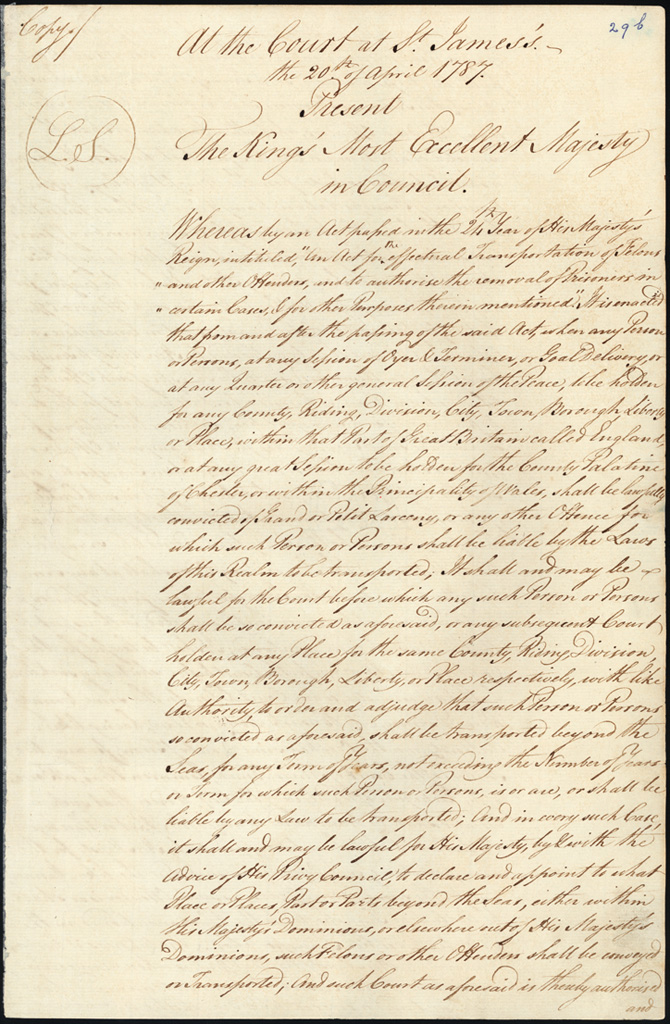 Copy
29b
At the Court at St. James's.
the 20th of April 1787.
Present
L.S.
The King's Most Excellent Majesty
in Council.
Whereas by an Act passed in the 24th Year of His Majesty's
Reign, intituled, "An Act for the effectual Transportation of Felons
" and other Offenders, and to authorise the removal of Prisoners in
" certain Cases, & for other Purposes therein mentioned." It is enacted
that from and after the passing of the said Act, when any Person
or Persons, at any Session of Oyer & Terminer, or Goal Delivery, or
at any Quarter or other general Session of the Peace, to be holden
for any County, Riding, Division, City, Town, Borough, Liberty
or Place, within that Part of Great Britain called England,
or at any great Session to be holden for the County Palatine
of Chester, or within the Principality of Wales, shall be lawfully
convicted of Grand or Petit Larceny, or any other Offence for
which such Person or Persons shall be liable by the Laws
of this Realm to be transported; It shall and may be
lawful for the Court before which any such Person or Persons
shall be so convicted as aforesaid, or any subsequent Court
holden at any Place for the same County, Riding, Division,
City, Town, Borough, Liberty, or Place respectively, with like
Authority, to order and adjudge that such Person or Persons
so convicted as aforesaid, shall be transported beyond the
Seas, for any Term of Years, not exceeding the Number of Years
or Term for which such Person or Persons, is or are, or shall be
liable by any Law to be transported; And in every such Case,
it shall and may be lawful for His Majesty, by & with the
Advice of His Privy Council, to declare and appoint to what
Place or Places, Part or Parts beyond the Seas, either within
His Majesty's Dominions, or elsewhere out of His Majesty's
Dominions, such Felons or other Offenders shall be conveyed
or Transported; And such Court as aforesaid is thereby authorised
and